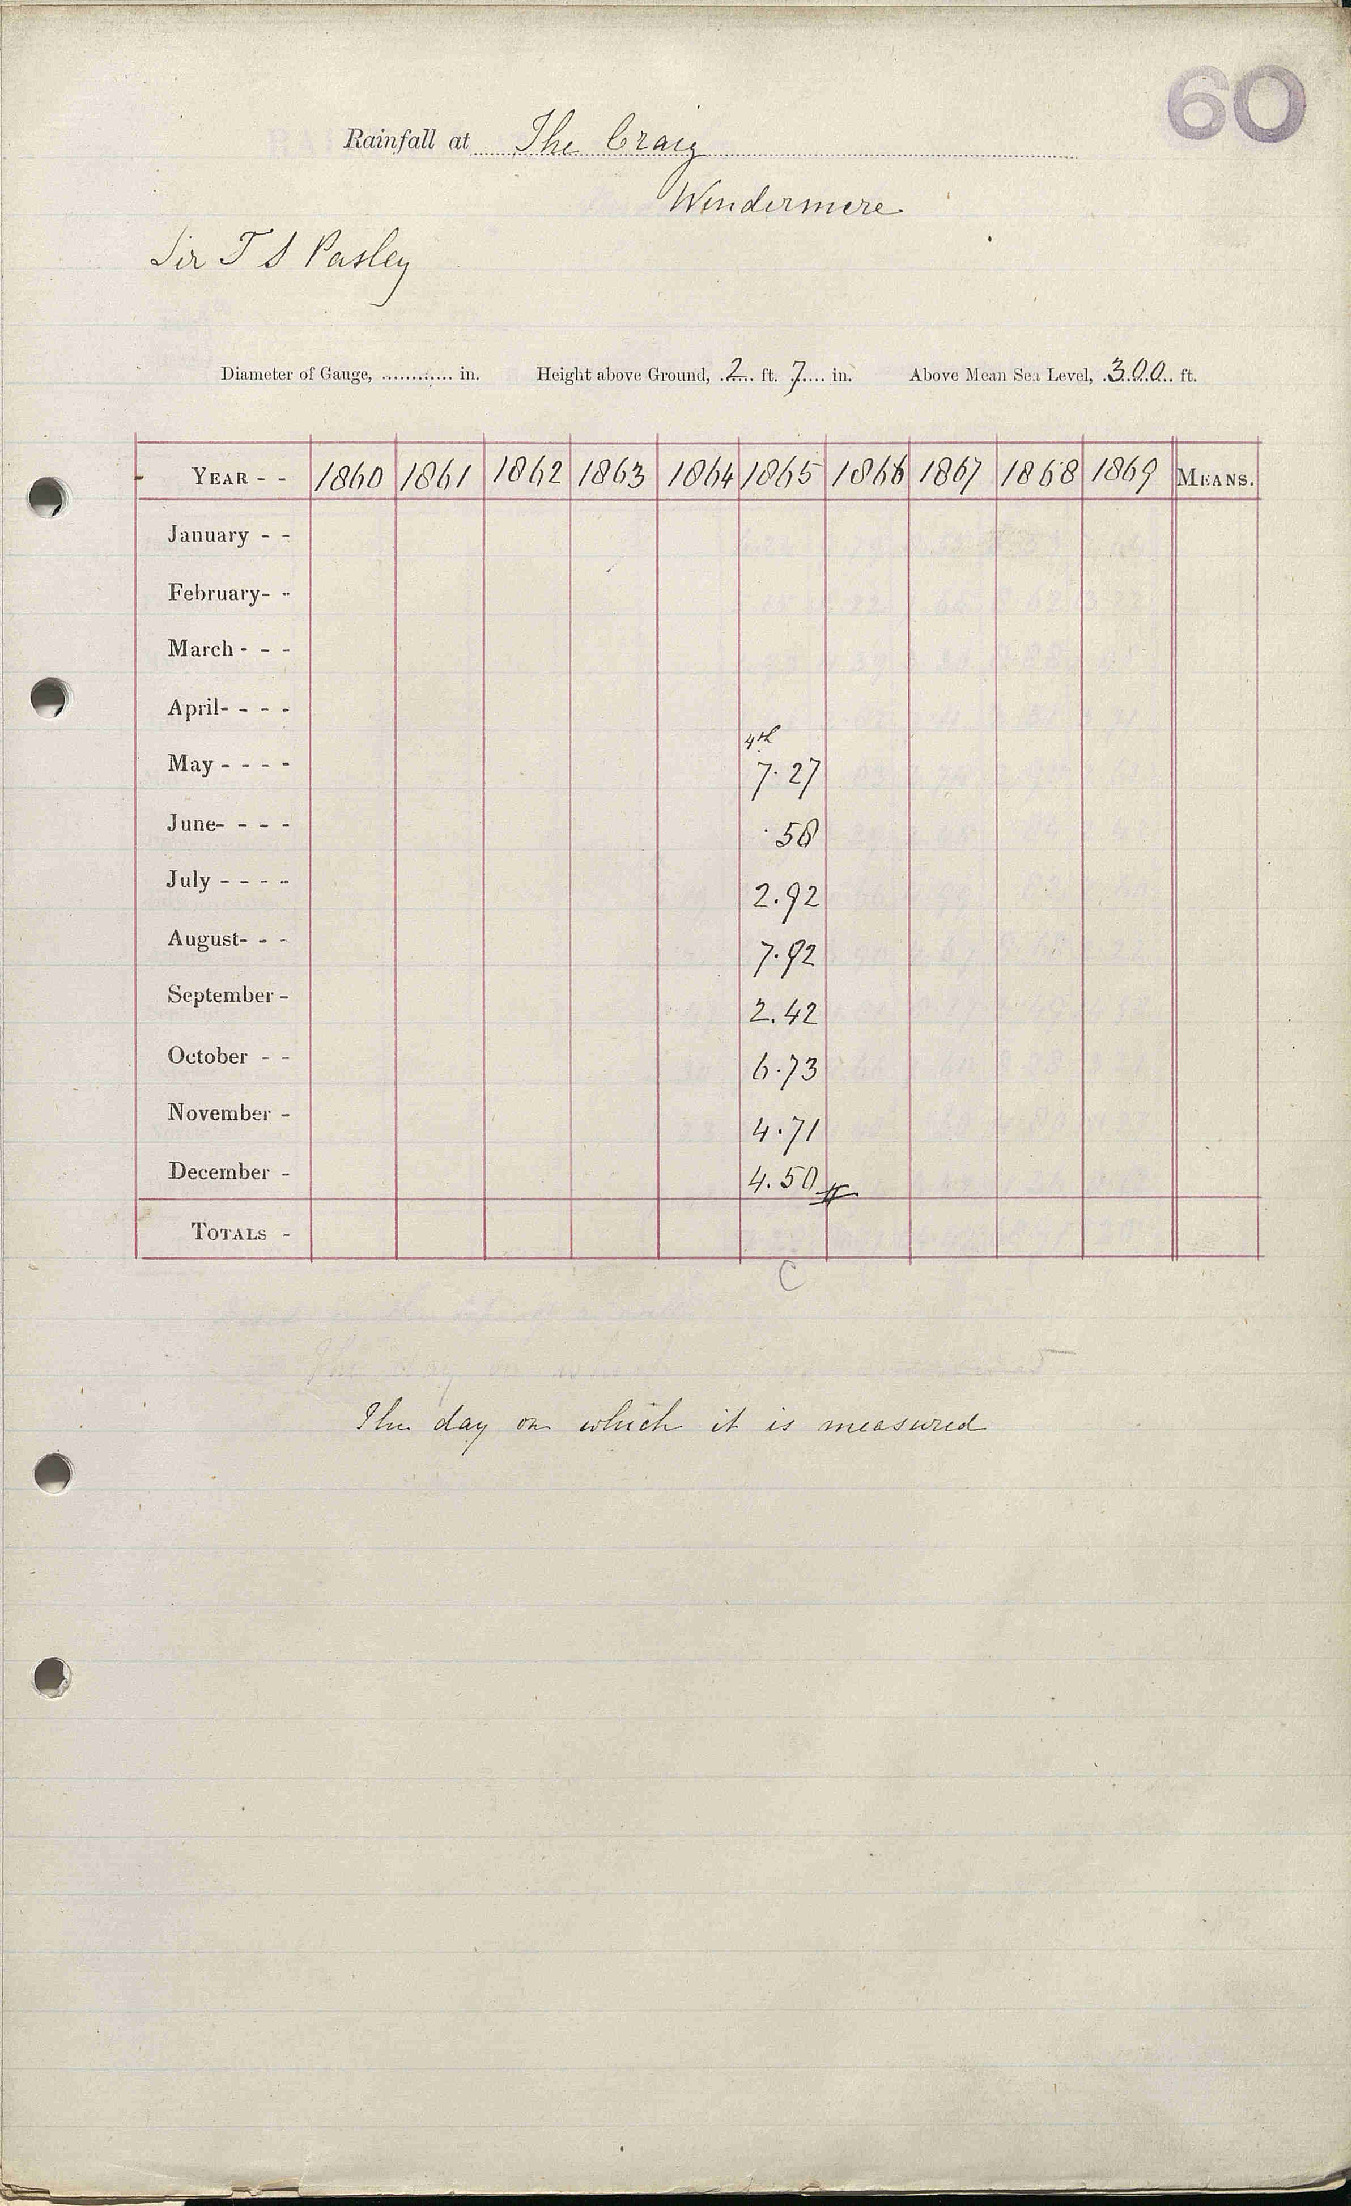 60
Rainfall at The Craig
Windermere
Sir T S Pasley
Diameter of Gauge, ............ in. Height above Ground, 2 ft. 7 in. Above Mean Sea Level, 300 ft.
YEAR - - 1860 1861 1862 1863 1864 1865 1866 1867 1868 1869 MEANS.
January - -
February- -
March - - -
April- - - -
4th
May - - - - 7.27
June- - - - .58
July - - - - 2.92
August- - - 7.92
September - 2.42
October - - 6.73
November - 4.71
December - 4.50
TOTALS -
C
The day on which it is measured